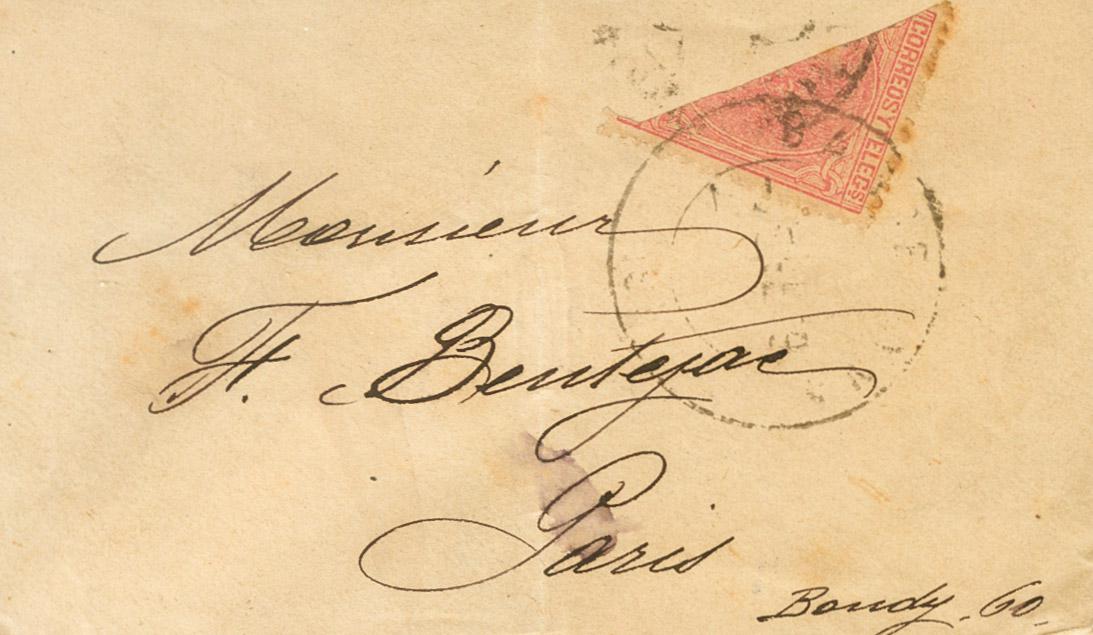 CORREOS Y TELEGS
Monsieur
F. Bentejac
Paris
Bondy. 60.